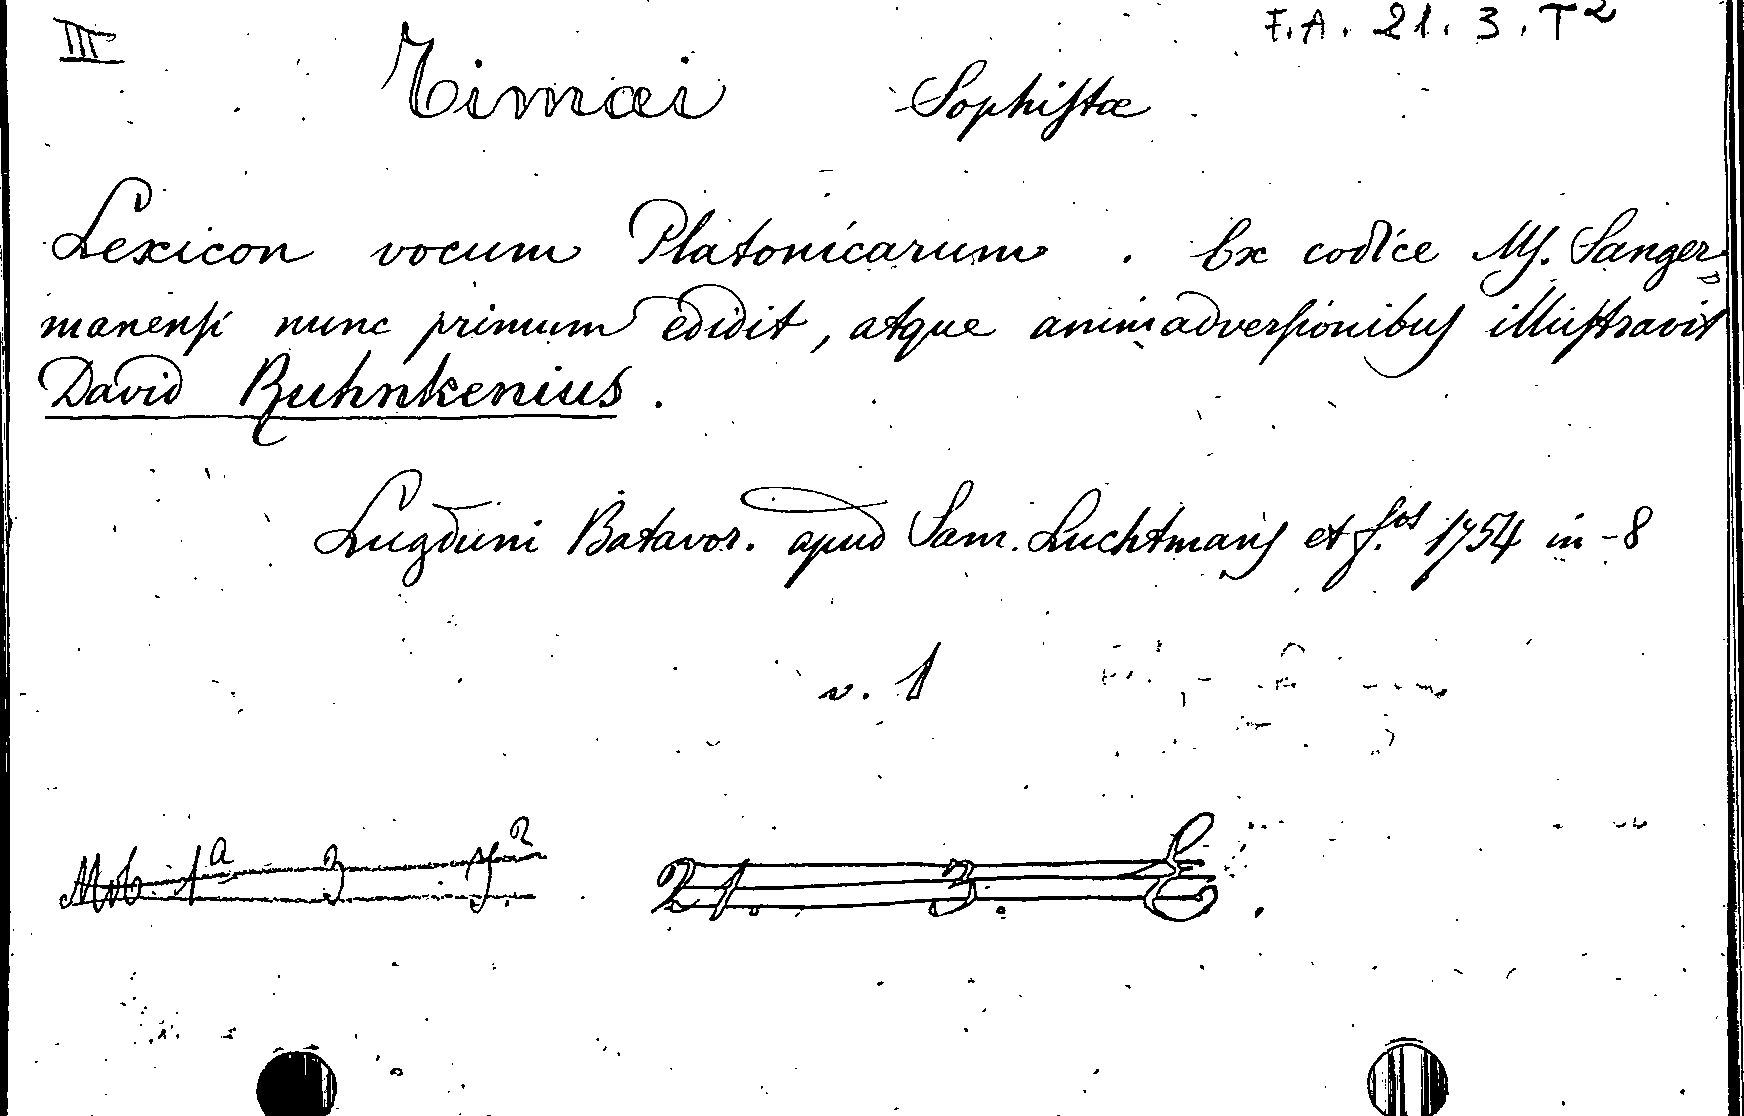 III F.A. 21. 3. T²
Timæi Sophistæ
Lexicon vocum Platonicarum. Ex codice Ms. Sanger-
manensi nunc primum edidit, atque animadversionibus illustravit
David Ruhnkenius.
Lugduni Batavor. apud Sam. Luchtmans et f.os 1754 in-8
v. 1
21. 3. E